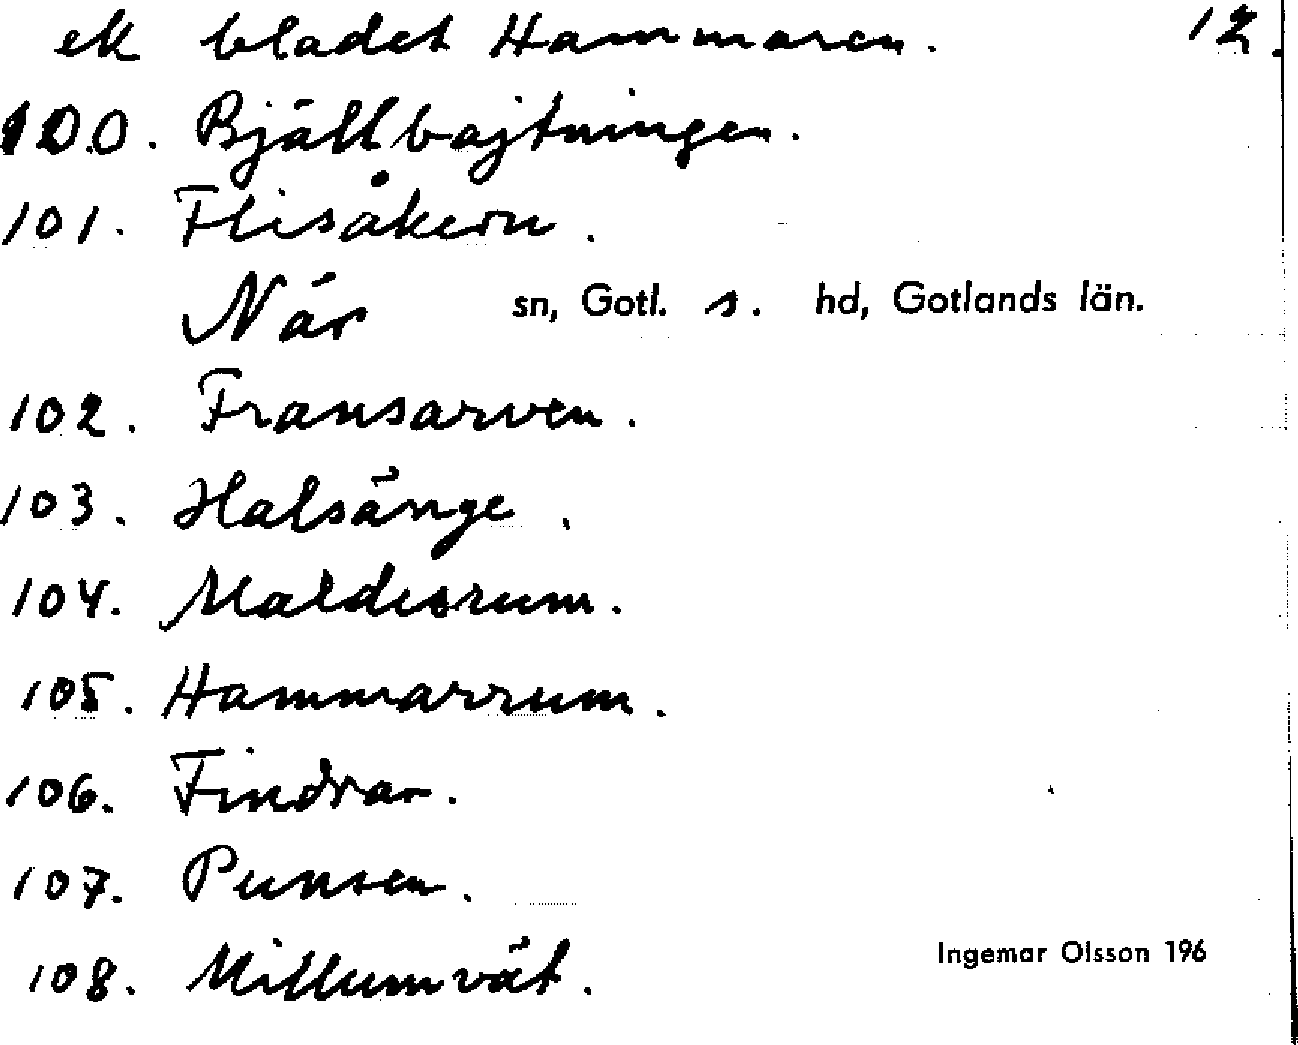 ek bladet Hammaren. 12.
100. Bjällbajtningen.
101. Flisåkern.
När sn, Gotl. s. hd, Gotlands län.
102. Fransarven.
103. Halsänge.
104. Maldesrum.
105. Hammarrum.
106. Findrar.
107. Punsen.
108. Millumvät.
Ingemar Olsson 196